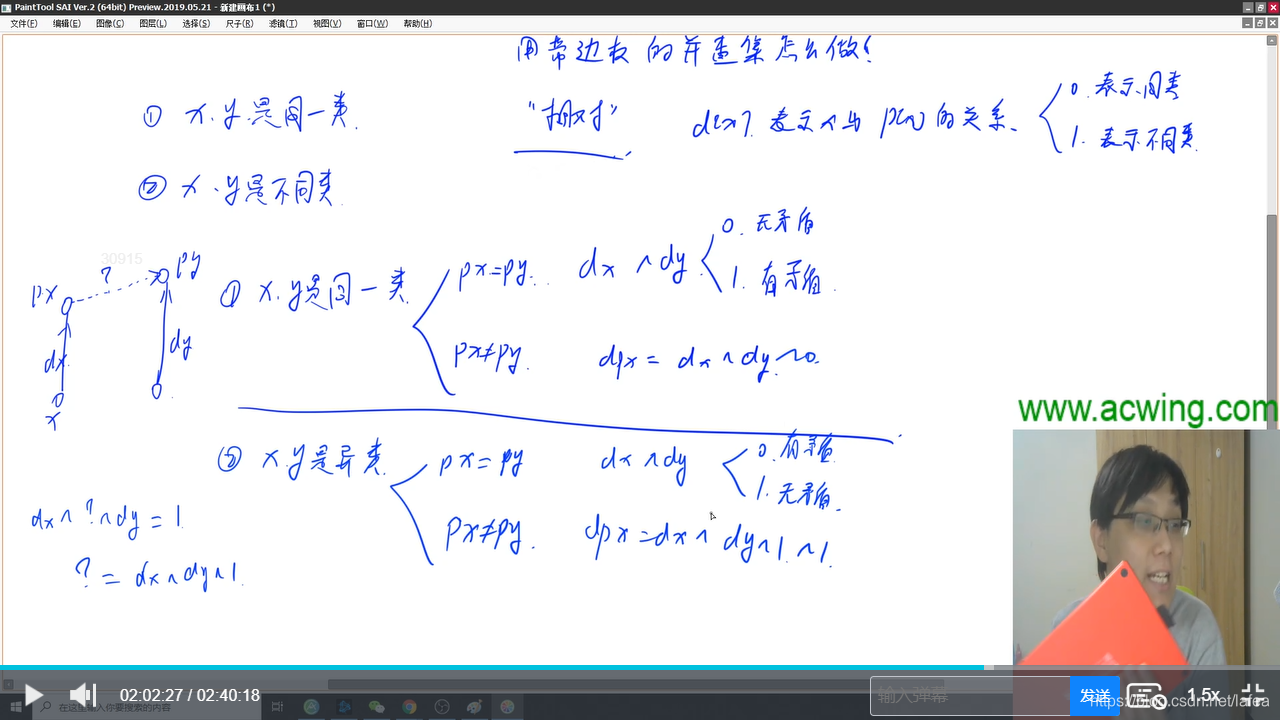 PaintTool SAI Ver.2 (64bit) Preview.2019.05.21 - 新建画布1 (*)
文件(F) 编辑(E) 图像(C) 图层(L) 选择(S) 尺子(R) 滤镜(T) 视图(V) 窗口(W) 帮助(H)
用带边权的并查集怎么做?
① x.y.是同一类.
"相对"
d[x]. 表示x与 p[x]的关系.
0. 表示同类
1. 表示不同类.
② x.y是不同类.
30915
px ? py
dx dy
x
① x.y是同一类.
px=py.
dx ^ dy
0. 无矛盾
1. 有矛盾.
px≠py.
dpx = dx ^ dy ^ 0.
② x.y是异类.
px = py
dx ^ dy
0. 有矛盾.
1. 无矛盾.
px≠py.
dpx = dx ^ dy ^ 1. ^ 1.
dx ^ ? ^ dy = 1.
? = dx ^ dy ^ 1.
www.acwing.com
02:02:27 / 02:40:18
输入弹幕
发送
1.5x
在这里输入你要搜索的内容
https://blog.csdn.net/lafea